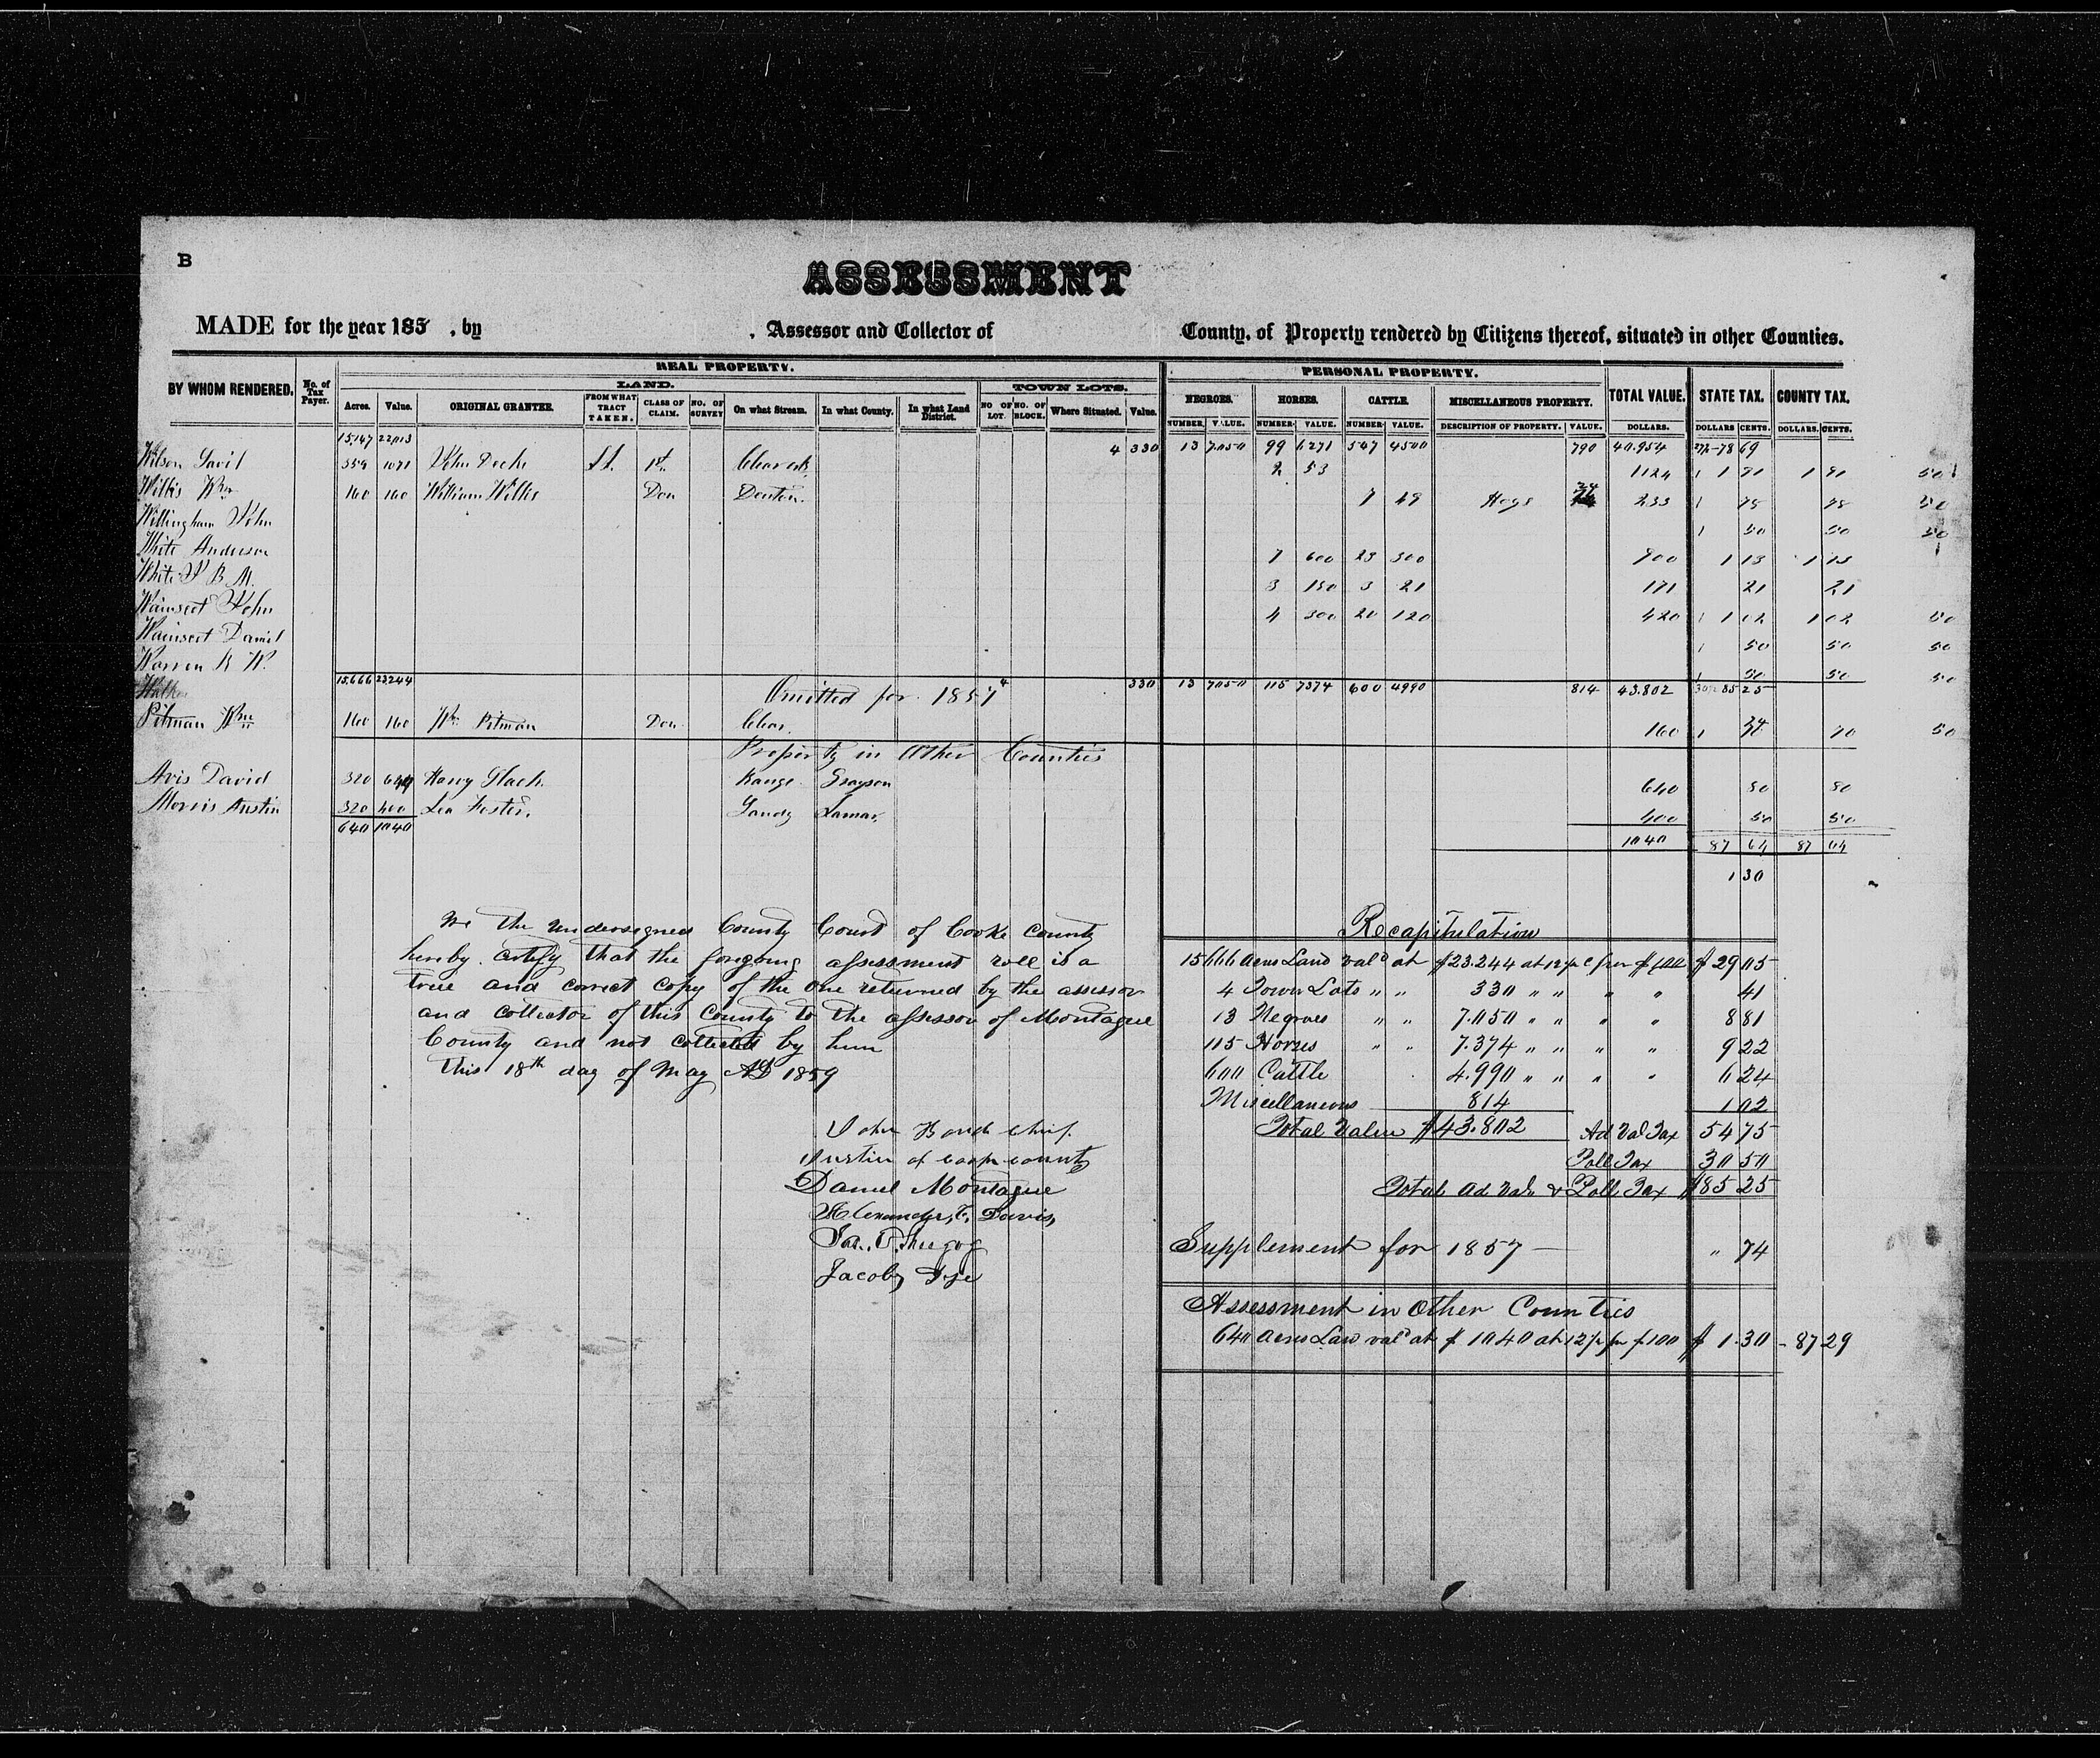 B
ASSESSMENT
MADE for the year 185 , by , Assessor and Collector of County, of Property rendered by Citizens thereof, situated in other Counties.
REAL PROPERTY. PERSONAL PROPERTY.
LAND. TOWN LOTS.
BY WHOM RENDERED. No. of Tax Payer. Acres. Value. ORIGINAL GRANTEE. FROM WHAT TRACT TAKEN. CLASS OF CLAIM. NO. OF SURVEY On what Stream. In what County. In what Land District. NO OF LOT. NO. OF BLOCK. Where Situated. Value. NEGROES. HORSES. CATTLE. MISCELLANEOUS PROPERTY. TOTAL VALUE. STATE TAX. COUNTY TAX.
NUMBER. VALUE. NUMBER. VALUE. NUMBER VALUE. DESCRIPTION OF PROPERTY. VALUE. DOLLARS. DOLLARS CENTS. DOLLARS. CENTS.
15,147 22,013 4 330 13 7,050 99 6271 547 4500 790 40.954 78 69
Wilson 359 1071 John 1st 2 53 1124 1 1 91 1 91 50
Willis Wm 160 160 William Willis Don Denton 7 49 Hogs 24 233 1 78 78 50
Willingham John 1 50 50 50
White Anderson 7 600 23 300 900 1 13 1 13
White B M. 3 150 3 21 171 21 21
Wainscot John 4 300 20 120 420 1 1 02 1 02 50
Wainscot Daniel 1 50 50 50
Warren W. 1 50 50 50
Walker 15,666 23,244 Omitted for 1857 4 330 13 7050 115 7374 600 4990 814 43.802 85 25
Pitman Wm 160 160 Wm Pitman Don Clear. 160 1 70 70 50
Property in Other Counties
Avis David 320 640 Grayson 640 80 80
Morris Austin 320 400 Foster. Sandy Lamar. 400 50 50
640 1040 1040 87 64 87 04
1 30
We the undersigned County Court of Cooke County
hereby certify that the foregoing assessment roll is a
true and correct copy of the one returned by the assessor
and collector of this County to the assessor of Montague
County and not collected by him
this 18th day of May AD 1859
John Bond Chief
Justice of Cooke county
Daniel Montague
Alexander, F. Davis,
Jacob Dye
Recapitulation
15666 acres Land val'd at $23.244 at 12½ c per $100 $29 05
4 Town Lots " " 330 " " " " 41
13 Negroes " " 7.050 " " " " 8 81
115 Horses " " 7.374 " " " " 9 22
600 Cattle 4.990 " " " " 6 24
Miscellaneous 814 1 02
Total Value $43.802 Ad Val Tax 54 75
Poll Tax 30 50
Total ad Val. & Poll Tax $85 25
Supplement for 1857 — " 74
Assessment in Other Counties
640 acres Land val'd at $ 1040 at 12½ per $100 $ 1.30 - 87 29